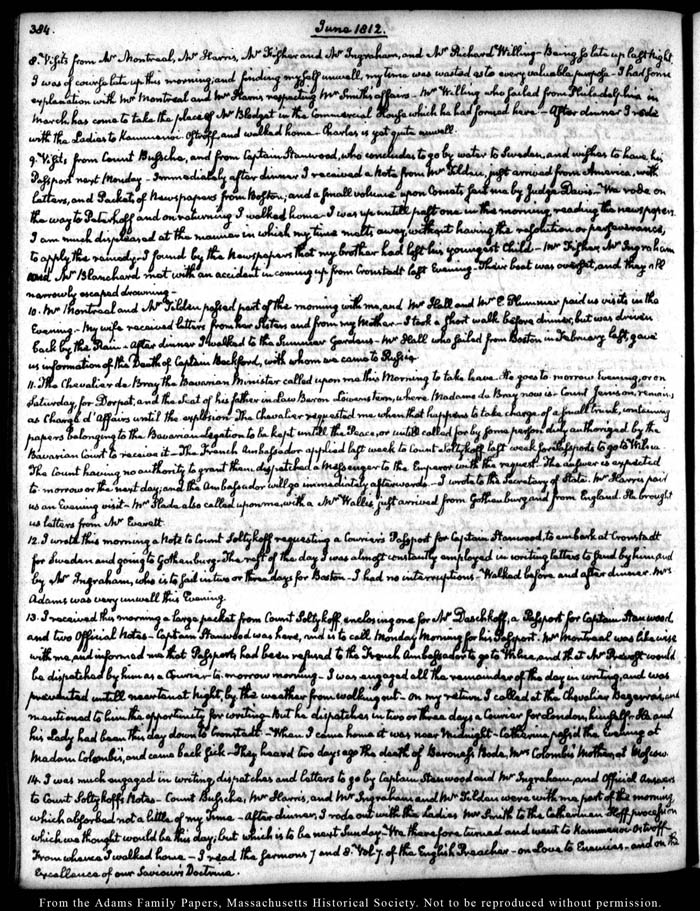 384. June 1812.
8. Visits from Mr Montreal, Mr Harris, Mr Fisher and Mr Ingraham, and Mr Richard Willing – Being so late up last night
I was of course late up this morning, and finding myself unwell, my time was wasted as to every valuable purpose – I had some
explanation with Mr Montreal and Mr Harris respecting Mr Smith's affairs – Mr Willing who sailed from Philadelphia in
March, has come to take the place of Mr Blodget in the Commercial House which he had formed here – After dinner I rode
with the Ladies to Kammenoi-Ostroff, and walked home – Charles is yet quite unwell.
9. Visits, from Count Bussche, and from Captain Stanwood, who concludes to go by water to Sweden, and wishes to have his
Passport next Monday – Immediately after dinner I received a Note from Mr Tilden, just arrived from America, with
Letters, and Packets of Newspapers from Boston; and a small volume upon Comets sent me by Judge Davis – We rode on
the way to Peterhoff and on returning I walked home – I was up untill past one in the morning, reading the newspapers
I am much displeased at the manner in which my time melts away, without having the resolution or perseverance,
to apply the remedy – I found by the Newspapers that my brother had lost his youngest Child – Mr Fisher, Mr Ingraham
and Mr Blanchard met with an accident in coming up from Cronstadt last Evening – Their boat was overset, and they all
narrowly escaped drowning –
10. Mr Montreal and Mr Tilden passed part of the morning with me, and Mr Hall and Mr E. Plummer paid us visits in the
Evening – My wife received letters from her Sisters and from my Mother – I took a short walk before dinner, but was driven
back by the Rain – After dinner I walked to the Summer Gardens – Mr Hall who sailed from Boston in February last, gave
us information of the Death of Captain Beckford, with whom we came to Russia
11. The Chevalier de Bray the Bavarian Minister called upon me this Morning to take leave. He goes to-morrow Evening, or on
Saturday, for Dorpat, and the Seat of his father in law Baron Löwenstern, where Madame de Bray now is – Count Jenison, remains
as Chargé d'Affairs until the explosion – The Chevalier requested me when that happens to take charge of a small trunk, containing
papers belonging to the Bavarian legation to be kept untill the Peace, or untill called for by some person duly authorized by the
Bavarian Court to receive it – The French Ambassador applied last week to Count Soltykoff last week for Passports to go to Wilna
The Count having no authority to grant them, dispatched a Messenger to the Emperor with the request. The answer is expected
to-morrow or the next day, and the Ambassador will go immediately afterwards – I wrote to the Secretary of State. Mr Harris paid
us an Evening visit – Mr Slade also called upon me, with a Mr Wallis, just arrived from Gothenburg and from England. He brought
us letters from Mr Everett
12. I wrote this morning a Note to Count Soltykoff requesting a Courier's Passport for Captain Stanwood, to embark at Cronstadt
for Sweden and going to Gothenburg – The rest of the day I was almost constantly employed in writing letters to send by him, and
by Mr Ingraham, who is to sail in two or three days for Boston – I had no interruptions – Walked before and after dinner. Mrs
Adams was very unwell this Evening
13. I received this morning a large packet from Count Soltykoff, enclosing one for Mr Daschkoff, a Passport for Captain Stanwood
and two Official Notes – Captain Stanwood was here, and is to call Monday Morning for his Passport. Mr Montreal was likewise
with me, and informed me that Passports had been refused to the French Ambassador to go to Wilna and that Mr Prevost would
be dispatched by him as a Courier to-morrow morning – I was engaged all the remainder of the day in writing, and was
prevented untill near ten at Night, by the weather from walking out – On my return I called at the Chevalier Bezerra's, and
mentioned to him the opportunity for writing – But he dispatches in two or three days a Courier for London, himself – He and
his Lady had been this day down to Cronstadt – When I came home it was near Midnight – Catherine passed the Evening at
Madam Colombi's, and came back sick – They heard two days ago the death of Baroness Bode, Mrs Colombi's Mother, at Moscow
14. I was much engaged in writing, dispatches and letters to go by Captain Stanwood and Mr Ingraham, and Official Answers
to Count Soltykoff's Notes – Count Bussche, Mr Harris, and Mr Ingraham and Mr Tilden were with me part of the morning,
which absorbed not a little of my Time – After dinner, I rode out with the Ladies Mr Smith to the Catherinen Hoff procession
which we thought would be this day; but which is to be next Sunday – We therefore turned and went to Kammenoi Ostroff –
From whence I walked home – I read the Sermons 7 and 8. Vol. 7. of the English Preacher – on Love to Enemies – and on the
Excellence of our Saviour's Doctrine.
From the Adams Family Papers, Massachusetts Historical Society. Not to be reproduced without permission.